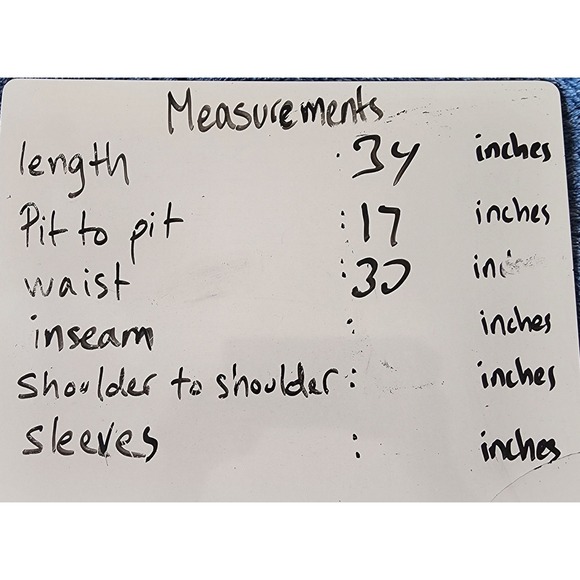 Measurements
length : 34 inches
Pit to pit : 17 inches
waist : 30
inseam : inches
shoulder to shoulder : inches
sleeves : inches